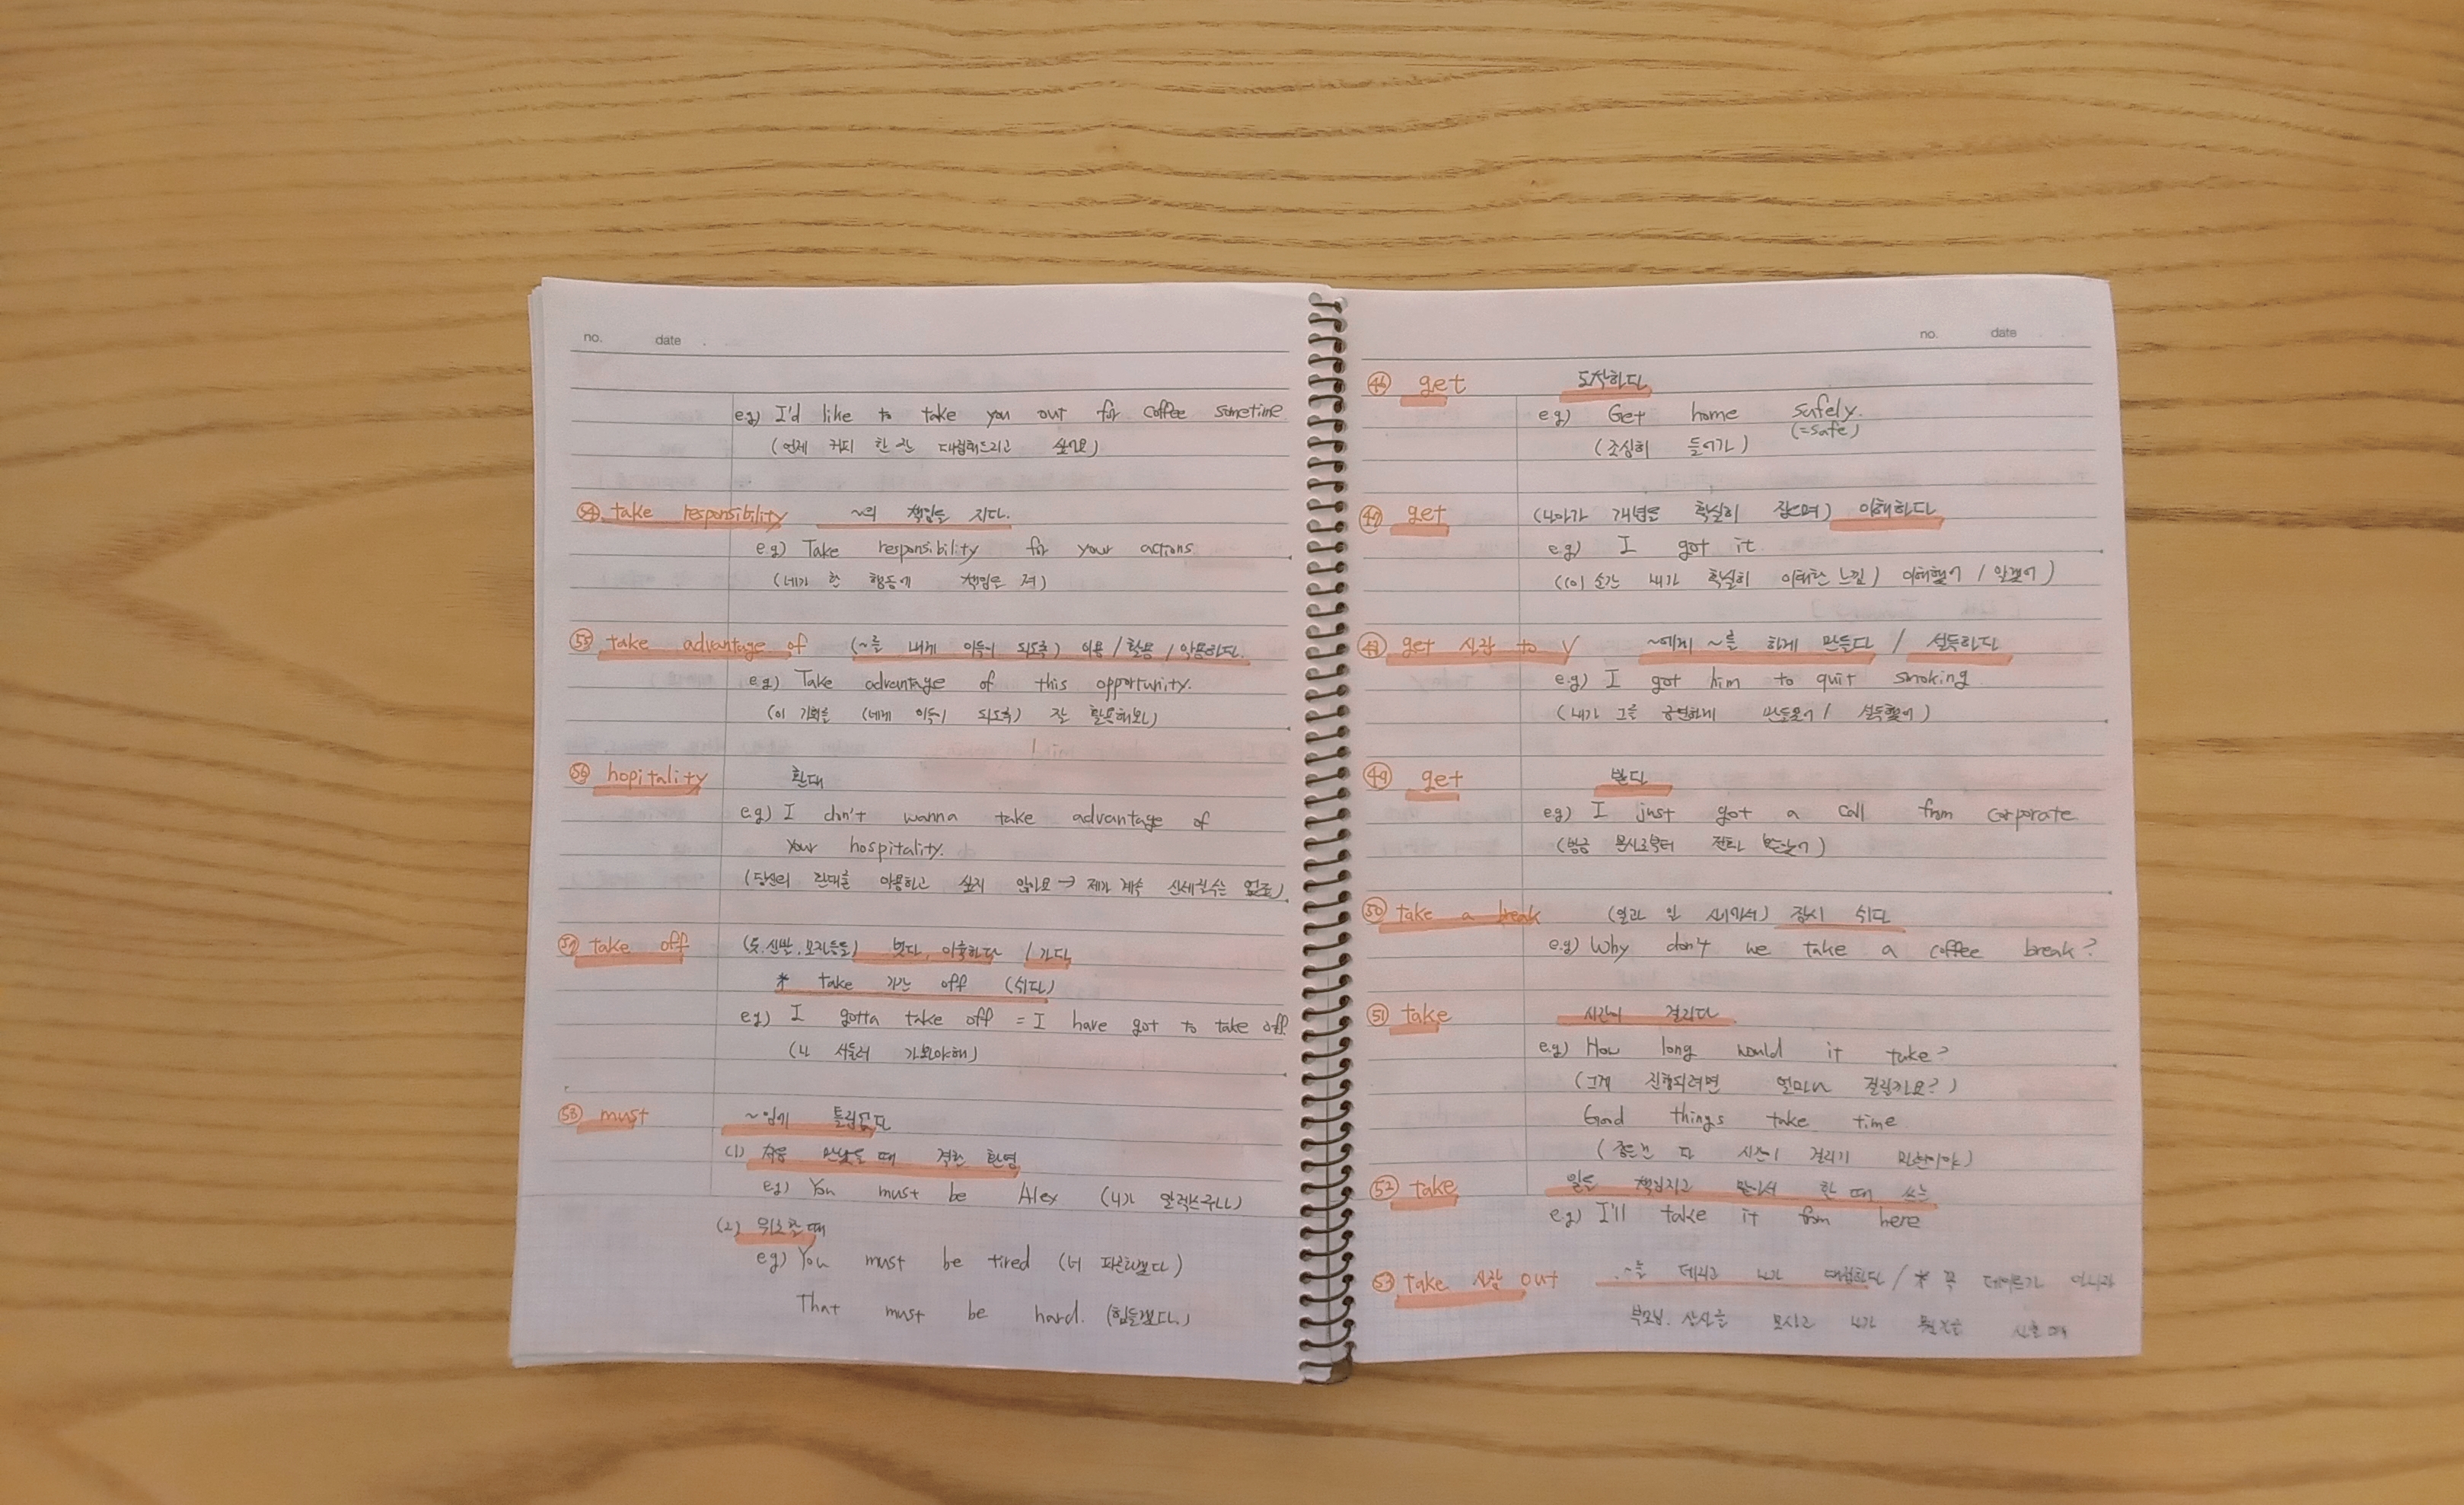 no. date
e.g) I'd like to take you out for coffee sometime
(언제 커피 한 잔 대접해드리고 싶어요)
54 take responsibility ~의 책임을 지다.
e.g) Take responsibility for your actions
(네가 한 행동에 책임은 져)
55 take advantage of (~를 내게 이득이 되도록) 이용 / 활용 / 악용하다.
e.g) Take advantage of this opportunity.
(이 기회를 (네게 이득이 되도록) 잘 활용해봐)
56 hopitality 환대
e.g) I don't wanna take advantage of
your hospitality.
(당신의 환대를 악용하고 싶지 않아요 → 제가 계속 신세질수는 없죠)
57 take off (옷, 신발, 모자등을) 벗다, 이륙하다 / 가다
* take 기간 off (쉬다)
e.g) I gotta take off = I have got to take off.
(나 서둘러 가봐야해)
58 must ~임에 틀림없다
(1) 처음 만났을 때 격한 환영
e.g) You must be Alex (니가 알렉스구나)
(2) 위로할 때
e.g) You must be tired (너 피곤하겠다)
That must be hard. (힘들겠다.)
no. date
46 get 도착하다
e.g) Get home safely.
(=safe)
(조심히 들어가)
47 get (나아가 개념을 확실히 잡으며) 이해하다
e.g) I got it
((이 순간 내가 확실히 이해한 느낌) 이해했어 / 알겠어)
48 get 사람 to V ~에게 ~를 하게 만들다 / 설득하다
e.g) I got him to quit smoking
(내가 그를 금연하게 만들었어 / 설득했어)
49 get 받다
e.g) I just got a call from corporate
(방금 본사로부터 전화 받았어)
50 take a break (일과 일 사이에서) 잠시 쉬다
e.g) Why don't we take a coffee break?
51 take 시간이 걸리다
e.g) How long would it take?
(그게 진행되려면 얼마나 걸릴까요?)
Good things take time
(좋은건 다 시간이 걸리기 마련이야)
52 take 일을 책임지고 맡아서 할 때 쓰는
e.g) I'll take it from here
53 take 사람 out ~를 데리고 나가 대접하다 / * 꼭 데이트가 아니라
부모님, 상사를 모시고 나가